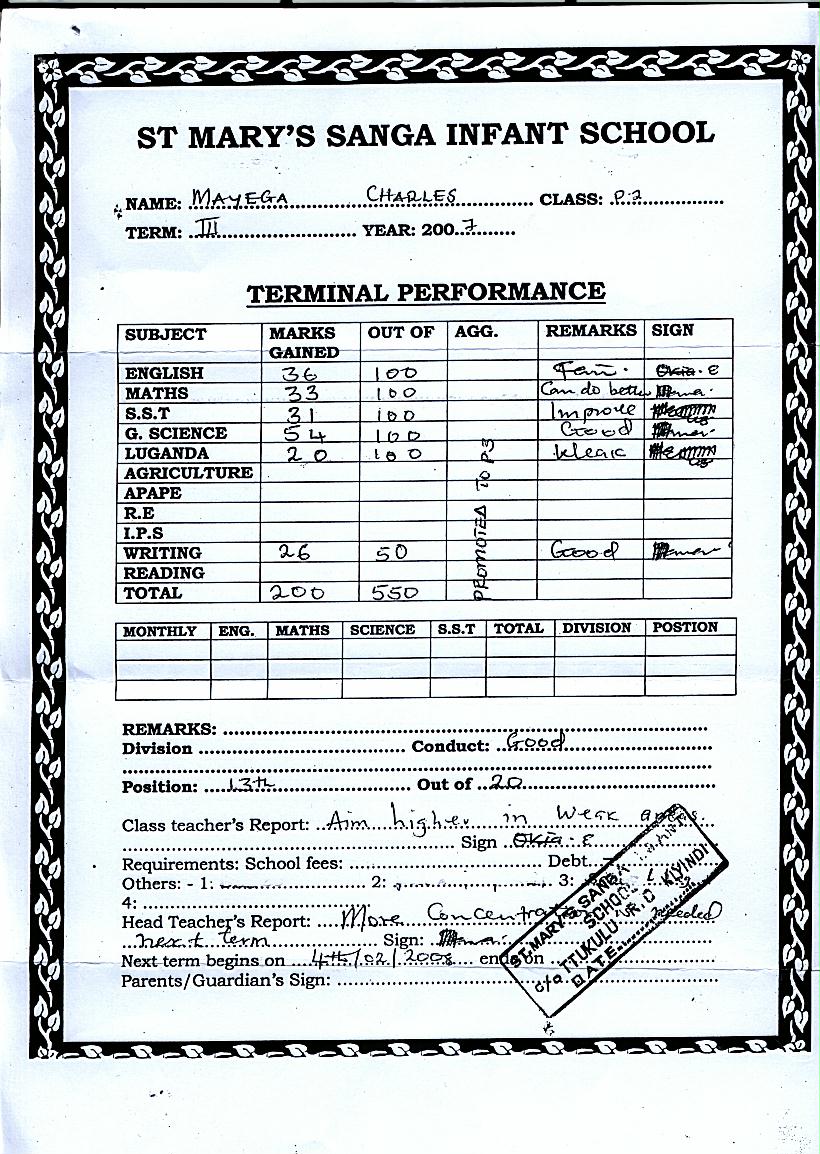 ST MARY'S SANGA INFANT SCHOOL
NAME: MAYEGA CHARLES CLASS: P.2
TERM: III YEAR: 2007
TERMINAL PERFORMANCE
SUBJECT MARKS GAINED OUT OF AGG. REMARKS SIGN
ENGLISH 36 100 Fair. Okia.E
MATHS 33 100 Can do better
S.S.T 31 100 Improve
G. SCIENCE 54 100 Good
LUGANDA 20 100 Weak
AGRICULTURE
APAPE
R.E
I.P.S
WRITING 26 50 Good
READING
TOTAL 200 550
PROMOTED TO P3
MONTHLY ENG. MATHS SCIENCE S.S.T TOTAL DIVISION POSTION
REMARKS:
Division Conduct: Good
Position: 13th Out of 20
Class teacher's Report: Aim higher in weak areas.
Sign Okia.E
Requirements: School fees: Debt
Others: - 1: 2: 3:
4:
Head Teacher's Report: More Concentration needed
next term Sign:
Next term begins on 4th/02/2008 ends on
Parents/Guardian's Sign:
ST. MARY'S SANGA
SCHOOL
c/o TTUKULU R.C KIYINDI
DATE